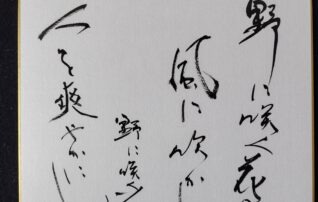 野に咲く花
風に吹か
野に咲く
人を爽やかに